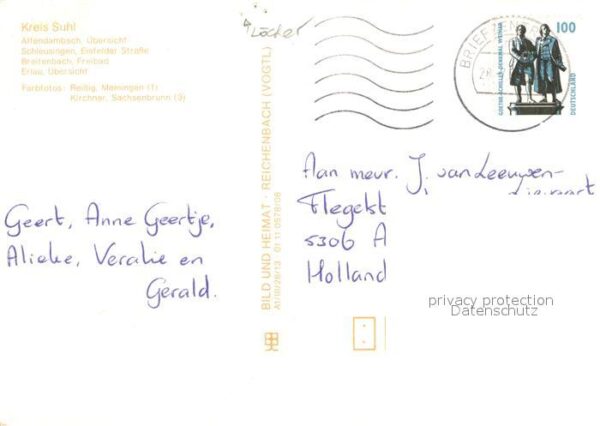 Kreis Suhl
Altendambach, Übersicht
Schleusingen, Eisfelder Straße
Breitenbach, Freibad
Erlau, Übersicht
Farbfotos: Reißig, Meiningen (1)
Kirchner, Sachsenbrunn (3)
Löcher
BILD UND HEIMAT · REICHENBACH (VOGTL)
A1/III/26/13 01 11 0578/06
BRIEFZENTR
100
GOETHE-SCHILLER-DENKMAL WEIMAR
DEUTSCHLAND
Aan mevr. J. van Leeuwen-
5306 A
Holland
Geert, Anne Geertje,
Alieke, Veralie en
Gerald.
privacy protection
Datenschutz